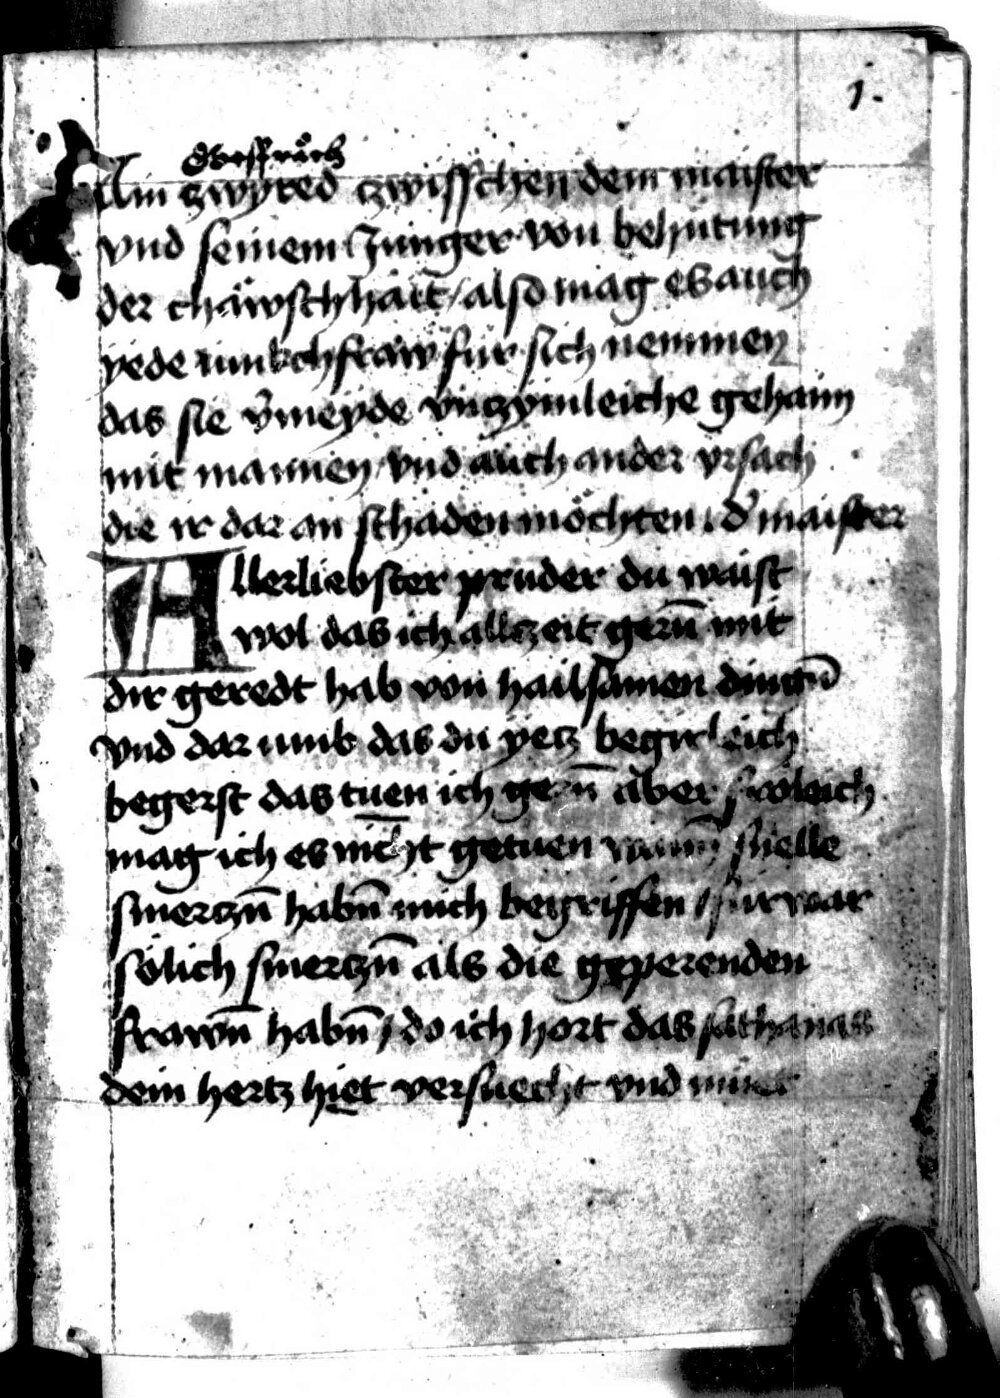 1.
Gesspräch
Ain zwyred zwisschen dem maister
vnd seinem Junger von behütung
der chäwschhait / also mag es auch
yede iunkchfraw für sich nemmen
das sie v̄meyde vnczymleiche gehaim
mit mannen vnd auch ander vrsach
die ir dar an schaden möchten . d' maister
Allerliebster pruder du waist
wol das ich allczeit gerñ mit
dir geredt hab von hailsamen dingñ
vnd dar umb das du yetz begirleich
begerst das tuen ich gerñ aber fröleich
mag ich es nicht getuen wann snelle
smerczñ habñ mich begriffen / fürwar
sölich smerczñ als die geperenden
frawñ habñ / do ich hort das sathanas
dein hertz hiet versuecht vnd